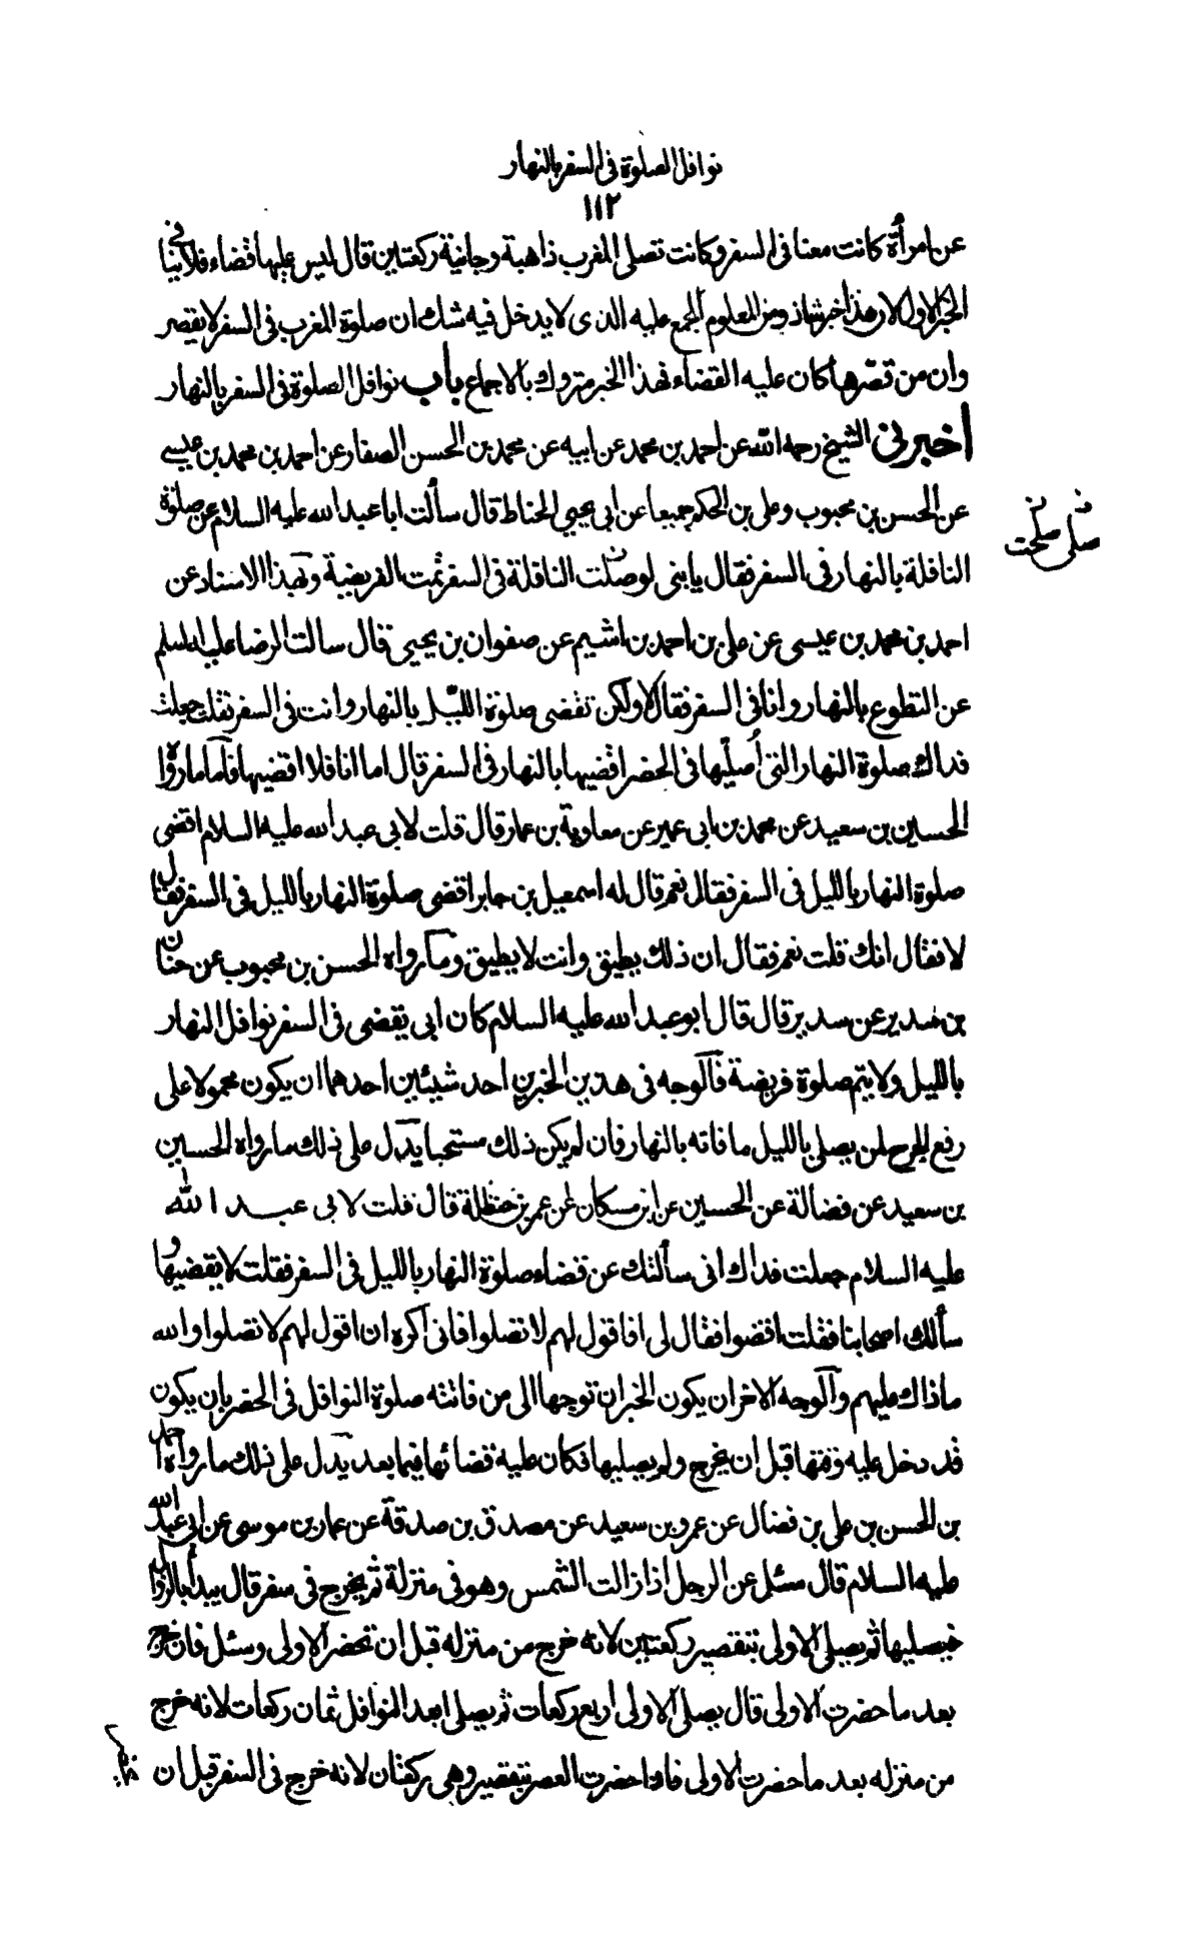 نوافل الصلوة فی السفر بالنهار
١١٢
عن امرأة كانت معنا فی السفر وكانت تصلی المغرب ذاهبة وجائية ركعتين قال ليس عليها قضاء فلا ينافی
الخبر الاول لان هذا خبر شاذ ومن المعلوم المجمع عليه الذی لا يدخل فيه شك ان صلوة المغرب فی السفر لا يقصر
وان من قصّرها كان عليه القضاء فهذا الخبر متروك بالاجماع باب نوافل الصلوة فی السفر بالنهار
اخبرنی الشيخ رحمه الله عن احمد بن محمد عن ابيه عن محمد بن الحسن الصفار عن احمد بن محمد بن عيسی
عن الحسن بن محبوب وعلی بن الحكم جميعا عن ابی يحيی الحناط قال سألت ابا عبد الله عليه السلام عن صلوة
النافلة بالنهار فی السفر فقال يا بنی لو صلت النافلة فی السفر تمت الفريضة وبهذا الاسناد عن
صلی صلحت
احمد بن محمد بن عيسی عن علی بن احمد بن اشيم عن صفوان بن يحيی قال سالت الرضا عليه السلم
عن التطوع بالنهار وانا فی السفر فقال لا ولكن تقضی صلوة الليل بالنهار وانت فی السفر فقلت جعلت
فداك صلوة النهار التی أصلّيها فی الحضر اقضيها بالنهار فی السفر قال اما انا فلا اقضيها فاما ما رواه
الحسين بن سعيد عن محمد بن ابی عمير عن معاوية بن عمار قال قلت لابی عبد الله عليه السلام اقضی
صلوة النهار بالليل فی السفر فقال نعم قال له اسمعيل بن جابر اقضی صلوة النهار بالليل فی السفر فقال
لا فقال انك قلت نعم فقال ان ذلك يطيق وانت لا يطيق وما رواه الحسن بن محبوب عن حنان
بن سدير عن سدير قال قال ابو عبد الله عليه السلام كان ابی يقضی فی السفر نوافل النهار
بالليل ولا يتم صلوة فريضة فالوجه فی هذين الخبرين احد شيئين احدهما ان يكون محمولا علی
رفع الحرج لمن يصلی بالليل ما فاته بالنهار فان لم يكن ذلك مستحبا يدل علی ذلك ما رواه الحسين
بن سعيد عن فضالة عن الحسين عن ابن مسكان عن عمر بن حنظلة قال قلت لابی عبد الله
عليه السلام جعلت فداك انی سألتك عن قضاء صلوة النهار بالليل فی السفر فقلت لا يقضيها و
سألك اصحابنا فقلت اقضوا فقال لی افاقول لهم لا تصلوا فانی اكره ان اقول لهم لا تصلوا والله
ما ذاك عليهم والوجه الاخر ان يكون الخبران توجها الی من فاتته صلوة النوافل فی الحضر بان يكون
قد دخل عليه وقتها قبل ان يخرج ولم يصليها فكان عليه قضائها فيما بعد يدل علی ذلك ما رواه احمد
بن الحسن بن علی بن فضال عن عمرو بن سعيد عن مصدق بن صدقة عن عمار بن موسی عن ابی عبد الله
عليه السلام قال سئل عن الرجل اذا زالت الشمس وهو فی منزلة ثم يخرج فی سفر قال يبدأ بالزوال
فيصليها ثم يصلی الاولی بتقصير ركعتين لانه خرج من منزله قبل ان تحضر الاولی وسئل فان خرج
بعد ما حضرت الاولی قال يصلی الاولی اربع ركعات ثم يصلی بعد النوافل ثمان ركعات لانه خرج
من منزله بعد ما حضرت الاولی فاذا حضرت العصر بتقصير وهی ركعتان لانه خرج فی السفر قبل ان